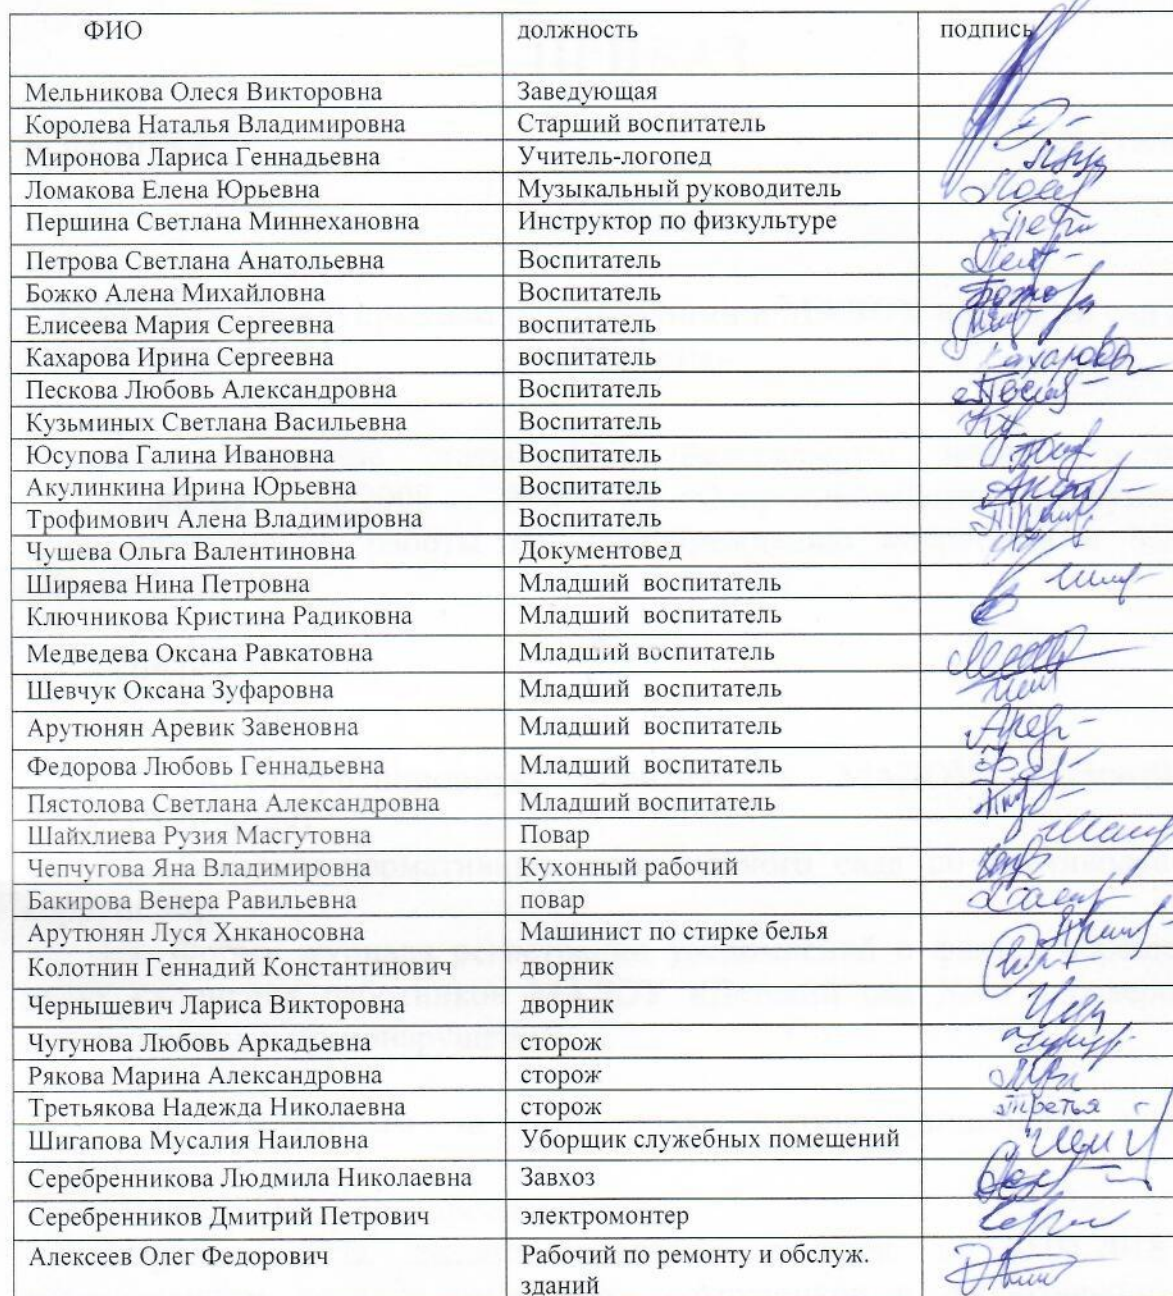 ФИО должность подпись
Мельникова Олеся Викторовна Заведующая
Королева Наталья Владимировна Старший воспитатель
Миронова Лариса Геннадьевна Учитель-логопед
Ломакова Елена Юрьевна Музыкальный руководитель
Першина Светлана Миннехановна Инструктор по физкультуре
Петрова Светлана Анатольевна Воспитатель
Божко Алена Михайловна Воспитатель
Елисеева Мария Сергеевна воспитатель
Кахарова Ирина Сергеевна воспитатель Кахарова
Пескова Любовь Александровна Воспитатель
Кузьминых Светлана Васильевна Воспитатель
Юсупова Галина Ивановна Воспитатель
Акулинкина Ирина Юрьевна Воспитатель
Трофимович Алена Владимировна Воспитатель
Чушева Ольга Валентиновна Документовед
Ширяева Нина Петровна Младший воспитатель
Ключникова Кристина Радиковна Младший воспитатель
Медведева Оксана Равкатовна Младший воспитатель
Шевчук Оксана Зуфаровна Младший воспитатель
Арутюнян Аревик Завеновна Младший воспитатель
Федорова Любовь Геннадьевна Младший воспитатель
Пястолова Светлана Александровна Младший воспитатель
Шайхлиева Рузия Масгутовна Повар
Чепчугова Яна Владимировна Кухонный рабочий
Бакирова Венера Равильевна повар
Арутюнян Луся Хнканосовна Машинист по стирке белья
Колотнин Геннадий Константинович дворник
Чернышевич Лариса Викторовна дворник
Чугунова Любовь Аркадьевна сторож
Рякова Марина Александровна сторож
Третьякова Надежда Николаевна сторож Третья
Шигапова Мусалия Наиловна Уборщик служебных помещений
Серебренникова Людмила Николаевна Завхоз
Серебренников Дмитрий Петрович электромонтер
Алексеев Олег Федорович Рабочий по ремонту и обслуж.
зданий